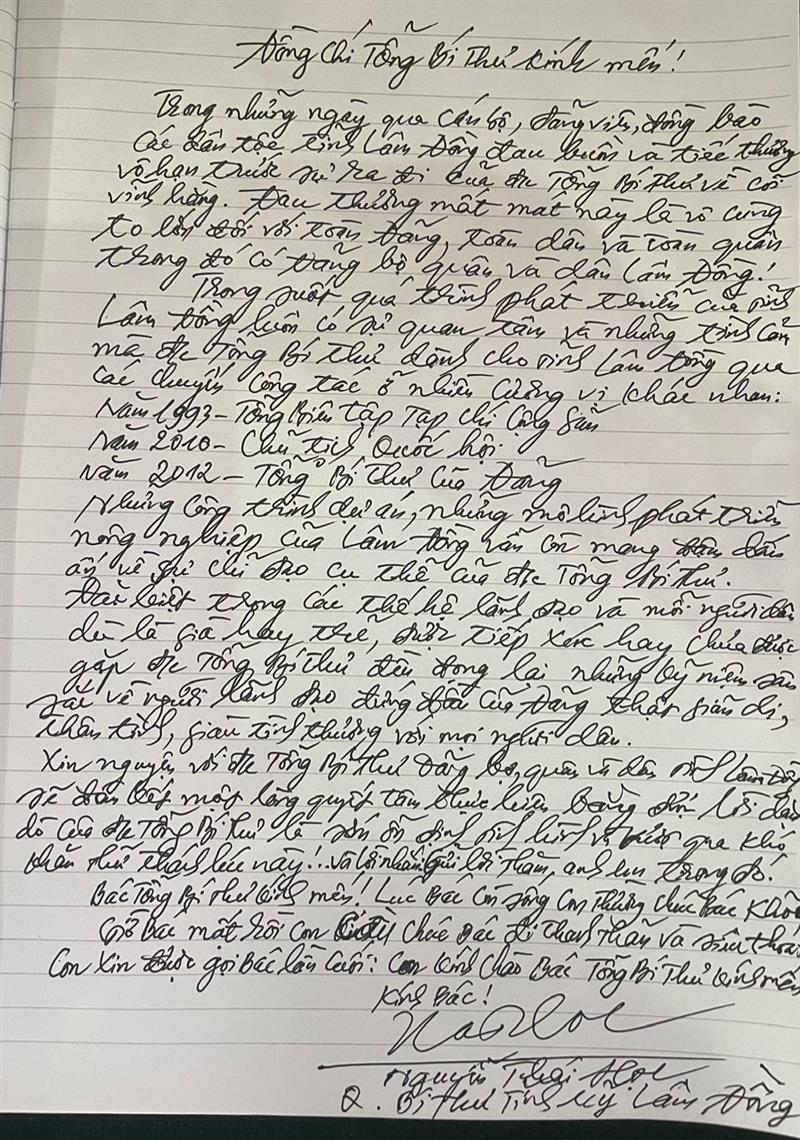 Đồng chí Tổng Bí thư kính mến!
Trong những ngày qua cán bộ, đảng viên, đồng bào
các dân tộc tỉnh Lâm Đồng đau buồn và tiếc thương
vô hạn trước sự ra đi của đ/c Tổng Bí thư về cõi
vĩnh hằng. Đau thương mất mát này là vô cùng
to lớn đối với toàn Đảng, toàn dân và toàn quân
trong đó có Đảng bộ quân và dân Lâm Đồng!
Trong suốt quá trình phát triển của tỉnh
Lâm Đồng luôn có sự quan tâm và những tình cảm
mà đ/c Tổng Bí thư dành cho tỉnh Lâm Đồng qua
các chuyến công tác ở nhiều cương vị khác nhau:
Năm 1993 - Tổng Biên tập Tạp chí Cộng sản
Năm 2010 - Chủ tịch Quốc hội
Năm 2012 - Tổng Bí thư của Đảng
Những công trình dự án, những mô hình phát triển
nông nghiệp của Lâm Đồng vẫn còn mang đậm dấu
ấn về sự chỉ đạo cụ thể của đ/c Tổng Bí thư.
Đặc biệt trong các thế hệ lãnh đạo và mỗi người dân
dù là già hay trẻ, được tiếp xúc hay chưa được
gặp đ/c Tổng Bí thư đều đọng lại những kỷ niệm sâu
sắc về người lãnh đạo đứng đầu của Đảng thật giản dị,
thân tình, giàu tình thương với mọi người dân.
Xin nguyện với đ/c Tổng Bí thư Đảng bộ, quân và dân tỉnh Lâm Đồng
sẽ đoàn kết một lòng quyết tâm thực hiện bằng được lời dặn
dò của đ/c Tổng Bí thư là sớm ổn định tình hình và vượt qua khó
khăn thử thách lúc này!... và lời nhắn gửi lời thăm, anh em trong đó.
Bác Tổng Bí thư kính mến! Lúc Bác còn sống con thường chúc Bác khỏe
Giờ Bác mất rồi con chúc Bác đi thanh thản và siêu thoát
Con xin được gọi Bác lần cuối: Con kính chào Bác Tổng Bí thư kính mến
Kính Bác!
Nguyễn Thái Học
Q. Bí thư Tỉnh ủy Lâm Đồng